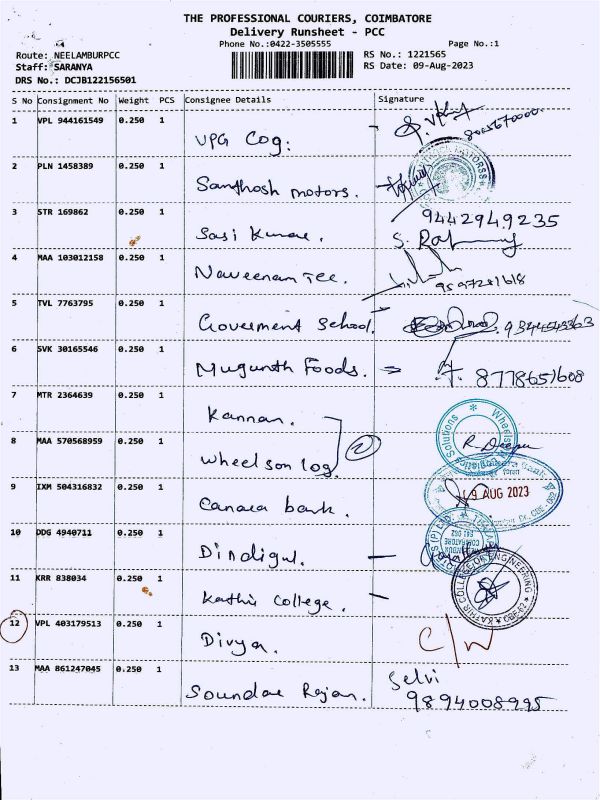 THE PROFESSIONAL COURIERS, COIMBATORE
Delivery Runsheet - PCC
Phone No.:0422-3505555 Page No.:1
Route: NEELAMBURPCC RS No.: 1221565
Staff: SARANYA RS Date: 09-Aug-2023
DRS No.: DCJB122156501
S No Consignment No Weight PCS Consignee Details Signature
1 VPL 944161549 0.250 1
VPG Cog:
2 PLN 1458389 0.250 1
Santhosh motors.
3 STR 169862 0.250 1 9442949235
Sasi Kumar.
4 MAA 103012158 0.250 1
Naveenam Tee. 9597281618
5 TVL 7763795 0.250 1
Goverment School.
6 SVK 30165546 0.250 1
Mugunth Foods. 8778651608
7 MTR 2364639 0.250 1
Kannan.
8 MAA 570568959 0.250 1 R. Deepa
Wheelson log. 2
9 IXM 504316832 0.250 1 9 AUG 2023
Canara bank.
10 DDG 4940711 0.250 1
Dindigul.
11 KRR 838034 0.250 1
Kathir College.
12 VPL 403179513 0.250 1 C/W
Divya.
13 MAA 861247045 0.250 1 Selvi
Soundar Rajan. 9894008995